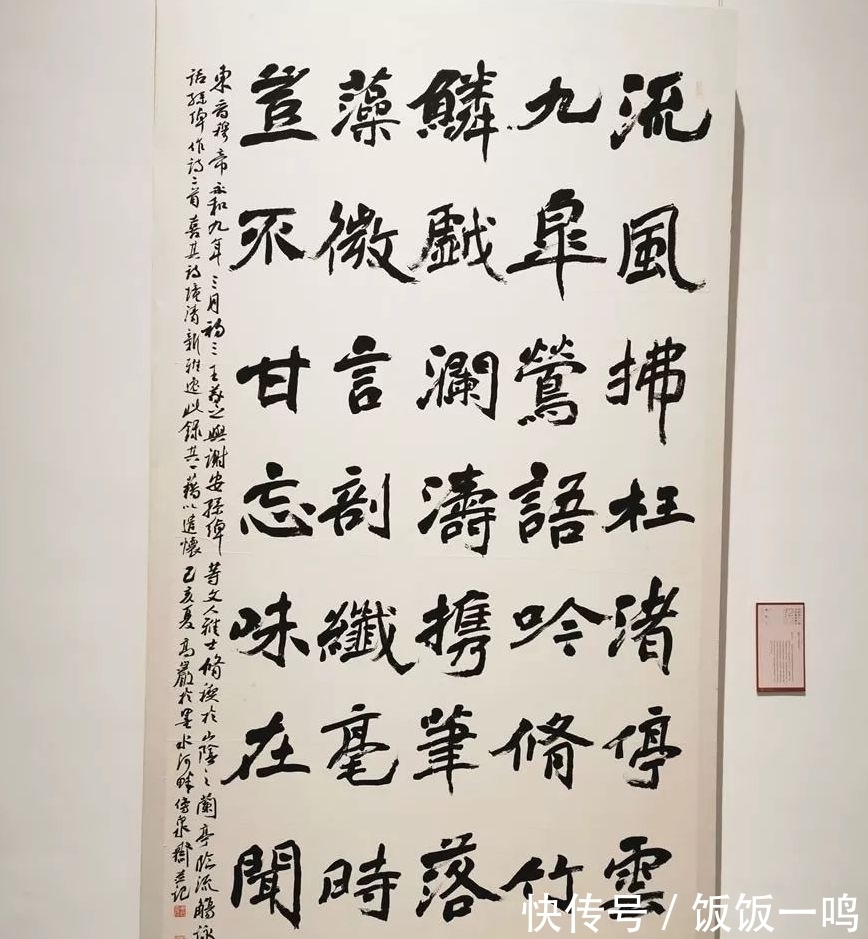 流風拂枉渚停雲
九皐鶯語吟脩竹
鱗戱瀾濤携筆落
藻微言剖纖毫時
豈不甘忘味在聞
東晉穆帝永和九年三月初三王羲之與謝安孫綽等文人雅士脩禊於山陰之蘭亭臨流觴詠
孫綽作詩二首喜其詩境清新雅逸此錄其一藉以遣懷己亥夏高嚴於墨水河畔傳泉齋並記
快传号 / 饭饭一鸣